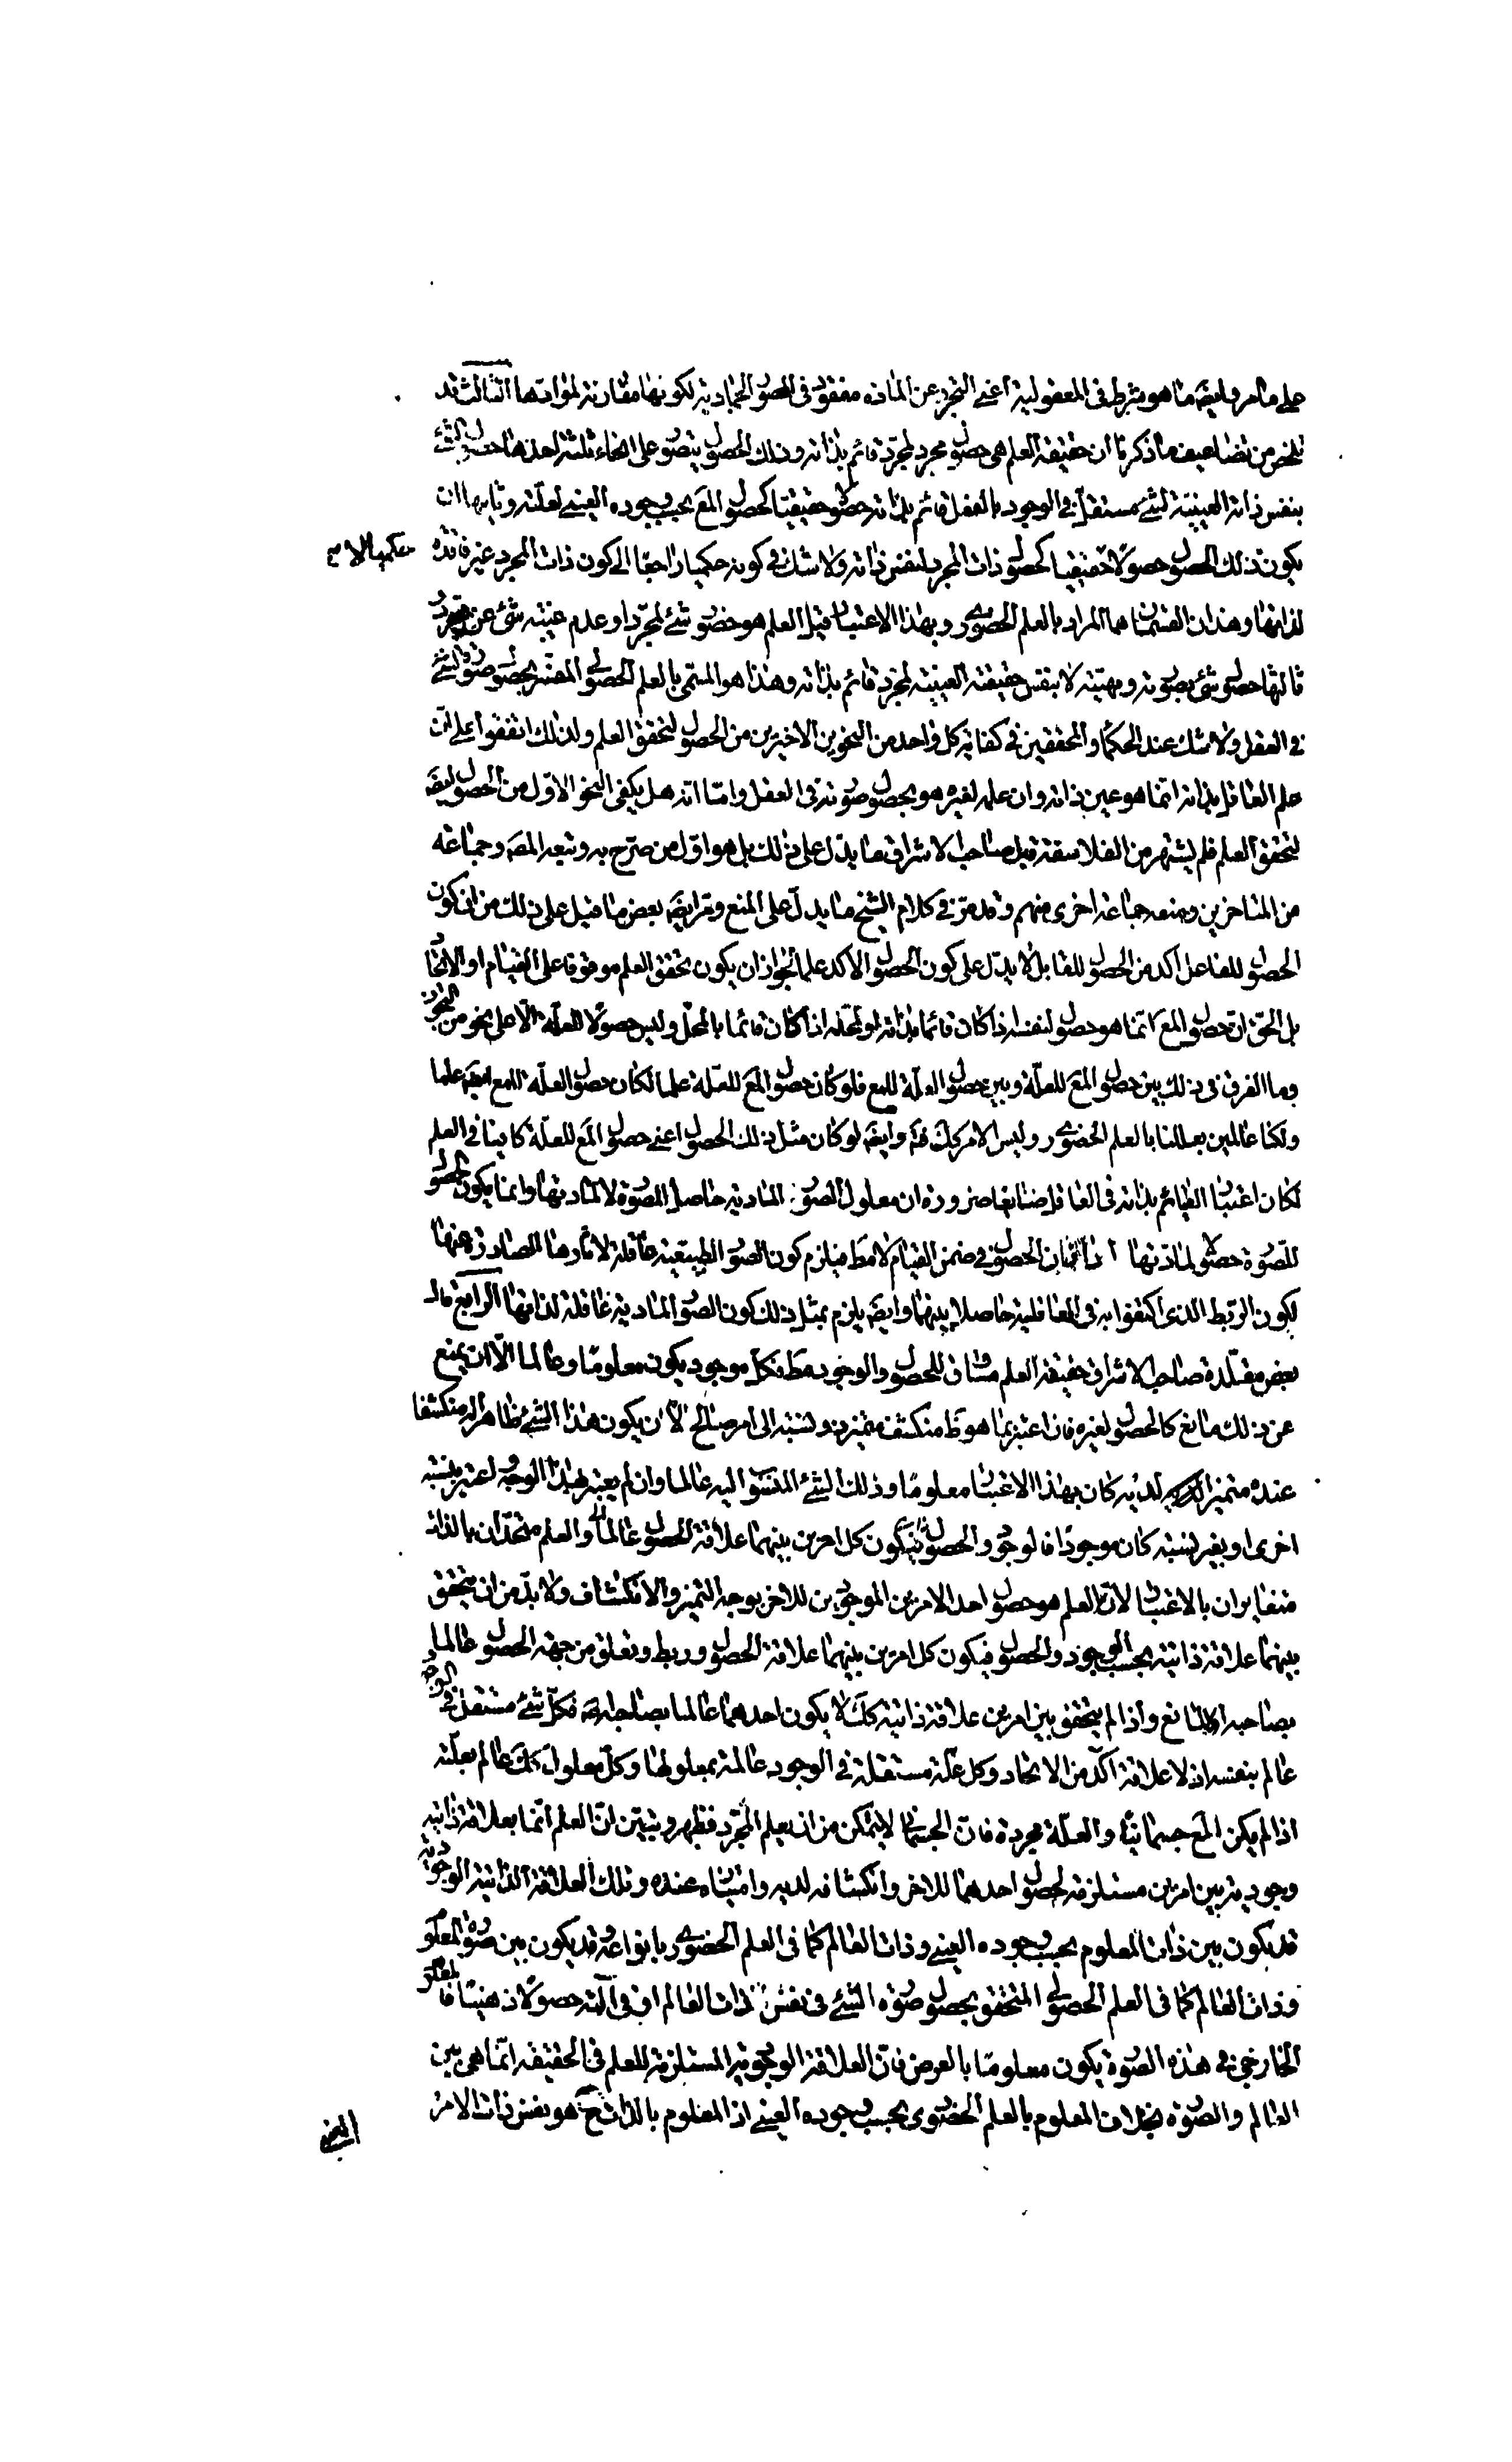 على ما مر وايضَه ما هو شرط فى المعقولية اعنى التجرد عن الماده مفقود فى الصور الجمادية لكونها مقارنة لموادها الثالث قد
تلخص من تضاعيف ما ذكرنا ان حقيقة العلم هى حصول مجرد لمجرّد قائم بذاته وذلك الحصول يتصور على انحاء ثلثة احدها حصول الشئ
بنفس ذاته العينيّة لشئ مستقل فى الوجود بالفعل قائم بذاته حصولا حقيقيا كحصول المع بحسب وجوده العينى لعلته وثانيها ان
يكون ذلك الحصول حصولًا حقيقيا كحصول ذات المجرد لنفس ذاته ولا شك فى كونه حكميا راجعا الى كون ذات المجرد غير فاقدة
لذاتها وهذان القسمان هما المراد بالعلم الحضورى وبهذا الاعتبار قيل العلم هو حضور شئ لمجرّد او عدم غيبته شئ عن مجرد
ثالثها حصول شئ بصورته وبهيئته لا بنفس حقيقته العينية لمجرد قائم بذاته وهذا هو المسمى بالعلم الحصولى المفسّر بحصول صورة الشئ
فى العقل ولا شك عند الحكما والمحققين فى كفاية كل واحد من النحوين الاخيرين من الحصول لتحقق العلم ولذلك اتفقوا على ان
علم العاقل بذاته انما هو عين ذاته وان علمه لغيره هو بحصول صورته فى العقل وامّا انه هل يكفى النحو الاوّل من الحصول ايضَه
لتحقق العلم فلم يشتهر من الفلاسفة قبل صاحب الاشراق ما يدل على ذلك بل هو اوّل من صرّح به وتبعه المصَه وجماعة
من المتاخرين ومنعه جماعة اخرى منهم وقد مرّ فى كلام الشيخ ما يدلّ على المنع ومرّ ايضَه بعض ما قيل على ذلك من ان كون
الحصول للفاعل اكد من الحصول للقابل لا يدّل على كون الحصول الاكد علما لجواز ان يكون تحقق العلم موقوفا على القيام او الاتحاد
بل الحق ان حصول المع انما هو حصول لنفسه اذا كان قائما بذاته او لمحلّه اذا كان قائما بالمحلّ وليس حصولًا للعلّة الّا على نحو من التجوز
وما الفرق فى ذلك بين حصول المع للعلّة وبين حصول العلّة للمع فلو كان حصول المع للعلة علما لكان حصول العلّة للمع ايضَه علما
ولكنا عالمين بعللنا بالعلم الحضورى وليس الامر كك هَف وايضَه لو كان مثل ذلك الحصول اعنى حصول المع للعلّة كافيا فى العلم
لكان اعتبار القائم بذاته فى العاقل ضايعا ضرورة ان معلول الصور المادية حاصل للصورة لا لمادتها وانما يكون الحصول
للصورة حصولا لمادتها اذا كان الحصول فى ضمن القيام لا مط فيلزم كون الصور الطبيعية عاقلة لاثارها الصادرة عنها
لكون الربط الذى اكتفوا به فى العاقلية حاصلا بينهما وايضَه يلزم بمثل ذلك كون الصور المادية عاقلة لذاتها الرابع قال
بعض مقلّدة صاحب الاشراق حقيقة العلم مساوق للحصول والوجود مط فكل موجود يكون معلومًا وعالما الّا ان يمنع
عن ذلك مانع كالحصول لغيره فان اعتبر بما هو ظ منكشف متميز ونسبته الى امر صالح لان يكون هذا الشئ ظاهرا له منكشفا
عنده متميزا لديه كان بهذا الاعتبار معلومًا وذلك الشئ المنسوب اليه عالما وان لم يعتبر بهذا الوجه اعتبر بنسبة
اخرى او بغير نسبة كان موجودًا فالوجود والحصول فيكون كل امرين بينهما علاقة الحصول عالما والعلم متحدان بالذات
متغايران بالاعتبار لان العلم هو حصول احد الامرين الموجودين للاخر بوجه التميز والانكشاف ولا بدّ من ان يتحقق
بينهما علاقة ذاتية بحسب الوجود والحصول فيكون كل امرين بينهما علاقة الحصول وربط وتعلق من جهة الحصول عالما
بصاحبه الا لمانع واذا لم يتحقق بين امرين علاقة ذاتية كك لا يكون احدهما عالما بصاحبه فكل شئ مستقل فى الوجود
عالم بنفسه اذ لا علاقة آكد من الاتحاد وكل علّة مستقلة فى الوجود عالمة بمعلولها وكل معلول كك عالم بعلّته
اذا لم يكن المع جسمانيّا والعلّة مجردة فان الجسمانى لا يتمكن من ان يعلم المجرّد فظهر وتبيّن ان العلم انما بعلاقة ذاتيه
وجودية بين امرين مستلزمة لحصول احدهما للاخر وانكشافه لديه وامتيازه عنده وتلك العلاقة الذاتية الوجودية
قد يكون بين ذات المعلوم بحسب وجوده العينى وذات العالم كما فى العلم الحضورى بانواعه وقد يكون بين صورة المعلوم
وذات العالم كما فى العلم الحصولى المتحقق بحصول صورة الشئ فى نفس ذات العالم او فى آلته حصولًا ذهنيّا فالمعلوم
الخارجى فى هذه الصورة يكون معلوما بالعرض فان العلاقة الوجودية المستلزمة للعلم فى الحقيقه انما هى بين
العالم والصورة بخلاف المعلوم بالعلم الحضورى بحسب وجوده العينى اذ المعلوم بالذات ح هو نفس ذات الامر